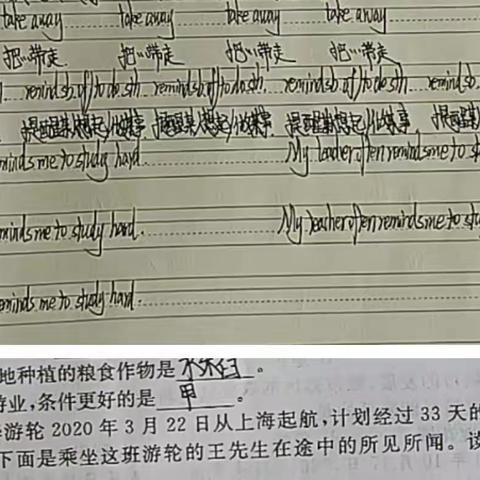 take away take away take away take away
把…带走 把…带走 把…带走 把…带走
remind sb. of/to do sth. remind sb. of/to do sth. remind sb. of/to do sth. remind sb.
提醒某人想起/做某事 提醒某人想起/做某事 提醒某人想起/做某事 提醒某
minds me to study hard. My teacher often reminds me to st
minds me to study hard. My teacher often reminds me to stu
minds me to study hard.
地种植的粮食作物是 水稻。
业,条件更好的是 甲。
游轮 2020 年 3 月 22 日从上海起航,计划经过 33 天的
下面是乘坐这班游轮的王先生在途中的所见所闻。读